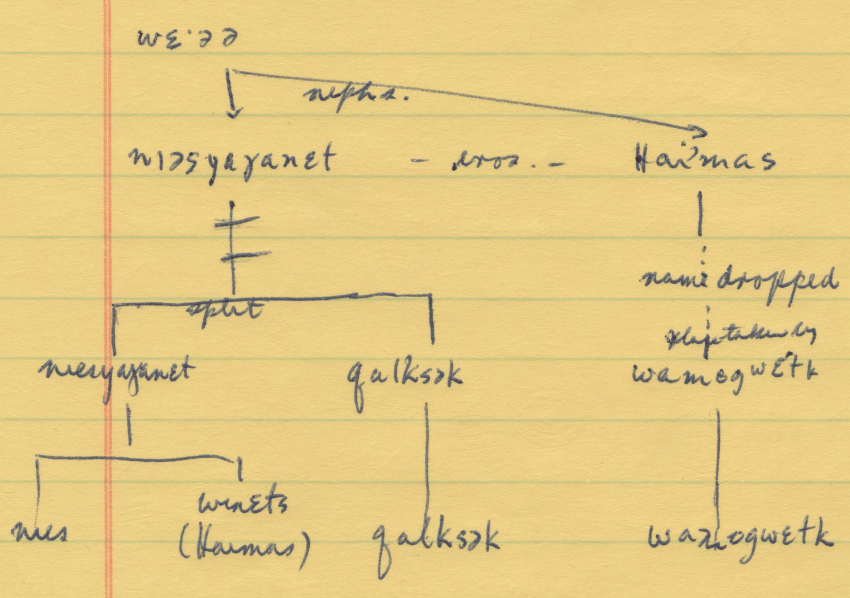 wɛ.ɛɛ
nephs.
niəsyaɣanɛt - bros. - Haimas
name dropped
split
place taken by
niesyaɣanɛt qalksək wamogwɛtk
winɛts
nies (Haimas) qalksək wamogwɛtk